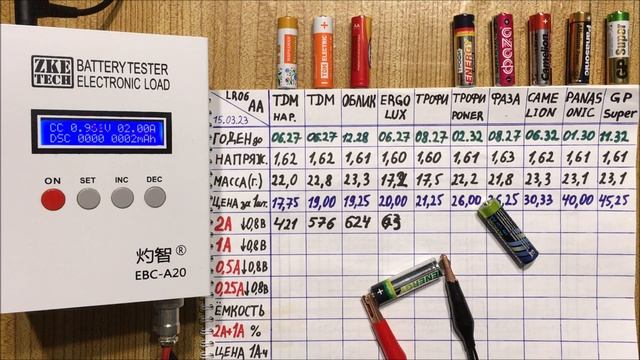 ZKE TECH BATTERY TESTER
ELECTRONIC LOAD
CC 0.961V 02.00A
DSC 0000 0002mAh
ON SET INC DEC
灼智®
EBC-A20
LR06 AA 15.03.23 TDM НАР. TDM ОБЛИК ERGO LUX ТРОФИ ТРОФИ POWER ФАЗА CAMELION PANASONIC GP Super
ГОДЕН до 06.27 06.27 12.28 06.27 08.27 02.32 08.27 06.32 01.30 11.32
НАПРЯЖ. 1,62 1,62 1,61 1,60 1,60 1,61 1,63 1,62 1,61 1,61
МАССА(г.) 22,0 22,8 23,3 17,2 17,5 22,2 21,8 23,3 23,1 23,1
ЦЕНА за 1 шт. 17,75 19,00 19,25 20,00 21,25 26,00 26,25 30,33 40,00 45,25
2А ↓0,8В 421 576 624 63
1А ↓0,8В
0,5А ↓0,8В
0,25А ↓0,8В
ЁМКОСТЬ
2А÷1А %
ЦЕНА 1А·ч
TDM ELECTRIC
ENERGY
ФАZА
Camelion
Panasonic
GP Super